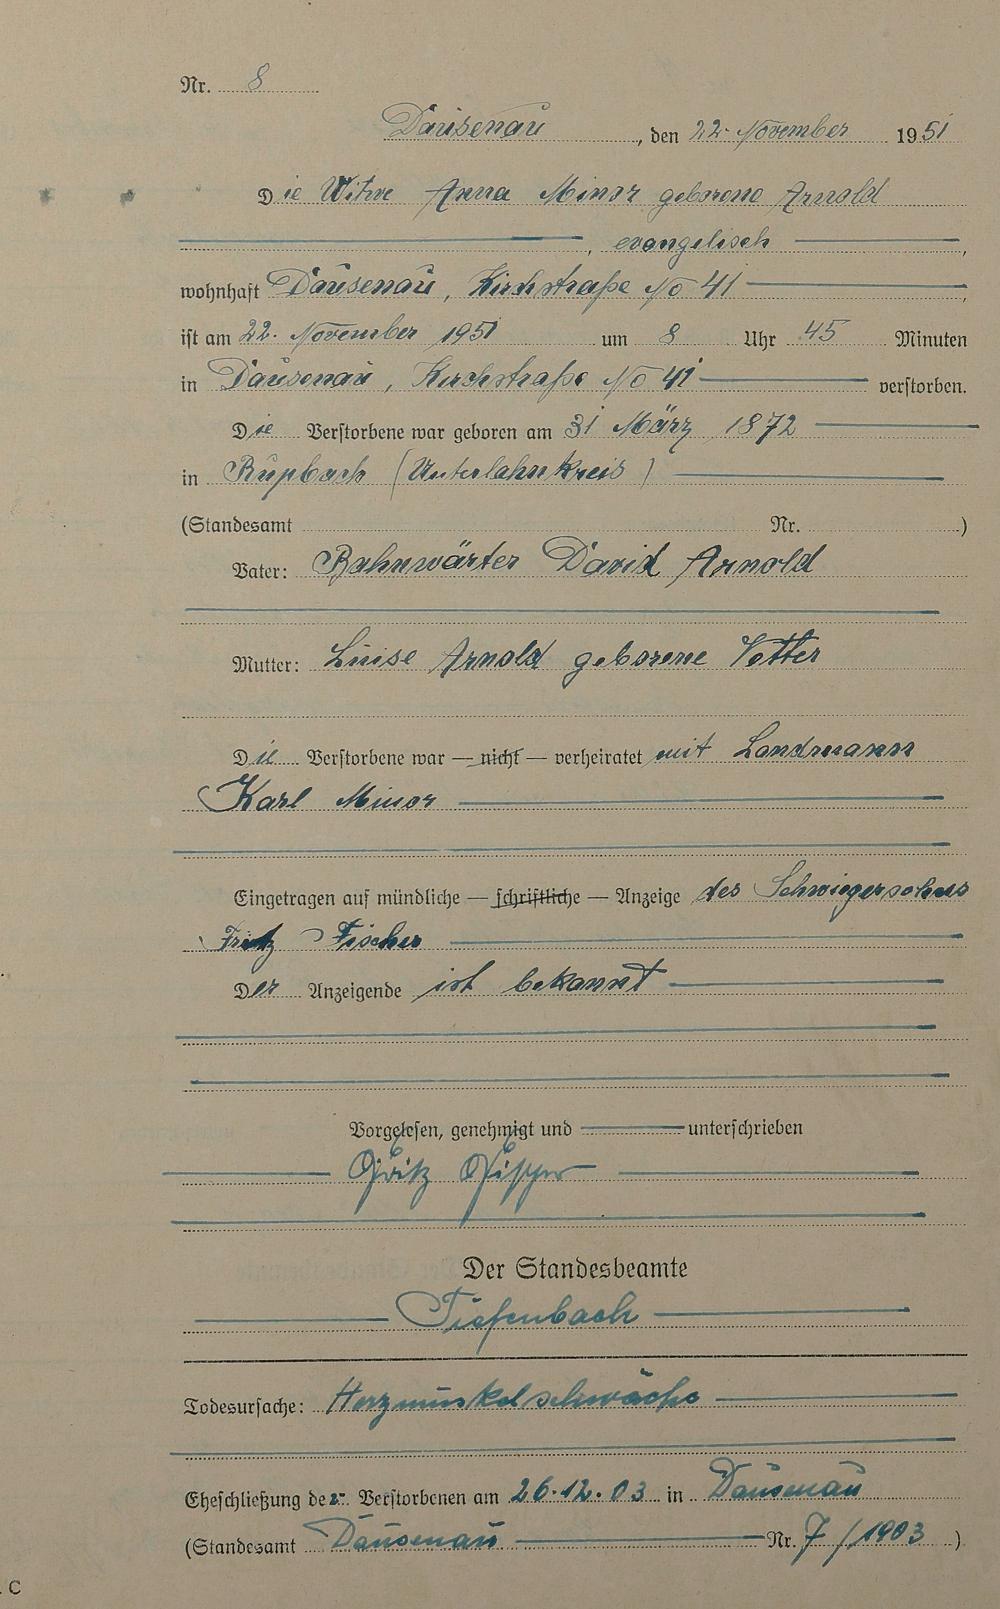 Nr. 8
Dausenau, den 22. November 1951
Die Witwe Anna Minor geborene Arnold
, evangelisch,
wohnhaft Dausenau, Kirchstraße No 41,
ist am 22. November 1951 um 8 Uhr 45 Minuten
in Dausenau, Kirchstraße No 41 verstorben.
Die Verstorbene war geboren am 31 März 1872
in Rupbach (Unterlahnkreis)
(Standesamt Nr. )
Vater: Bahnwärter David Arnold
Mutter: Luise Arnold geborene Vetter
Die Verstorbene war — nicht — verheiratet mit Landmann
Karl Minor
Eingetragen auf mündliche — schriftliche — Anzeige des Schwiegersohnes
Fritz Fischer
Der Anzeigende ist bekannt
Vorgelesen, genehmigt und unterschrieben
Fritz Fischer
Der Standesbeamte
Tiefenbach
Todesursache: Herzmuskelschwäche
Eheschließung der Verstorbenen am 26.12.03 in Dausenau
(Standesamt Dausenau Nr. 7/1903)
C